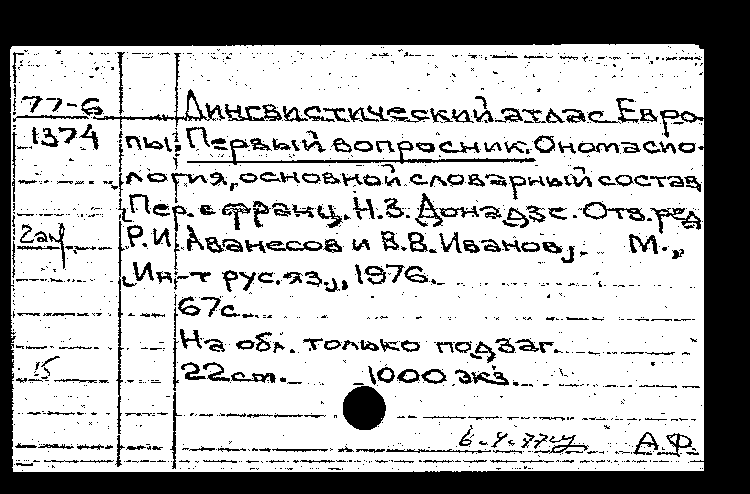 77-6 Лингвистический атлас Евро-
1374 пы: Первый вопросник. Ономасио-
логия, основной словарный состав
[Пер. с франц. Н.З. Донадзе. Отв. ред.
Р.И. Аванесов и В.В. Иванов]. М.,
[Ин-т рус. яз.], 1976.
67с.
На обл. только подзаг.
15 22 см. 1000 экз.
А.Ф.